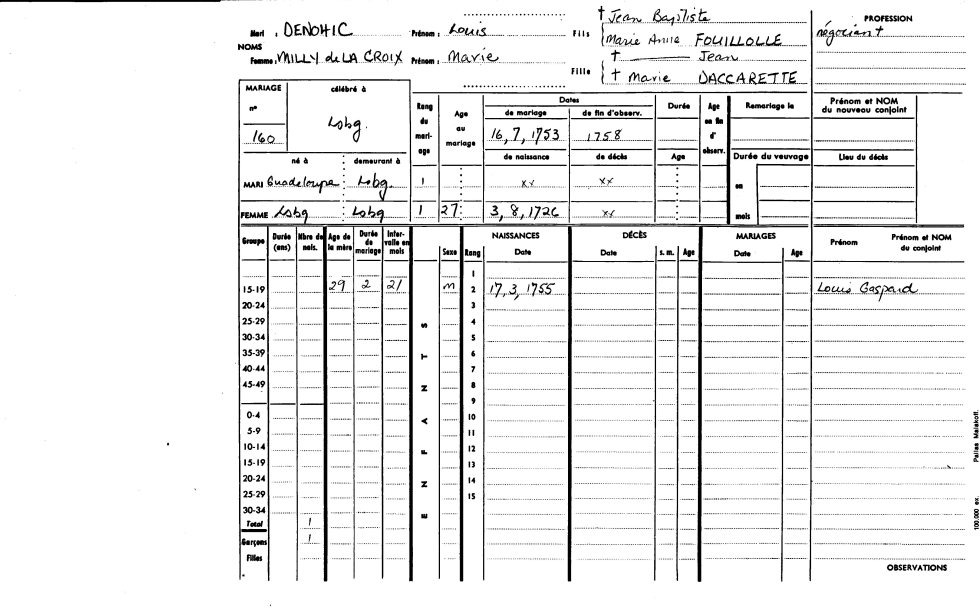 † Jean Baptiste
Mari : DENOHIC Prénom : Louis Fils Marie Anne FOUILLOLLE
PROFESSION
négociant
NOMS
Femme : MILLY de LA CROIX Prénom : Marie Fille † Jean
† Marie DACCARETTE
MARIAGE célébré à
n° 160 Lobg.
Rang du mariage Age au mariage
Dates
de mariage de fin d'observ. Durée Age en fin d'observ. Remariage le Prénom et NOM du nouveau conjoint
16, 7, 1753 1758
né à demeurant à de naissance de décès Age Durée du veuvage Lieu du décès
MARI Guadeloupe Lobg. 1 xx xx en
FEMME Lobg Lobg 1 27 3, 8, 1726 xx mois
Groupe Durée (ans) Nbre de nais. Age de la mère Durée de mariage Intervalle en mois Sexe Rang NAISSANCES Date DÉCÈS Date s. m. Age MARIAGES Date Age Prénom Prénom et NOM du conjoint
1
15-19 29 2 21 m 2 17, 3, 1755 Louis Gaspard
20-24 3
25-29 4
30-34 5
35-39 6
40-44 7
45-49 8
9
0-4 10
5-9 11
10-14 12
15-19 13
20-24 14
25-29 15
30-34
Total 1
Garçons 1
Filles
ENFANTS
OBSERVATIONS
100.000 ex. Pallas Malakoff.